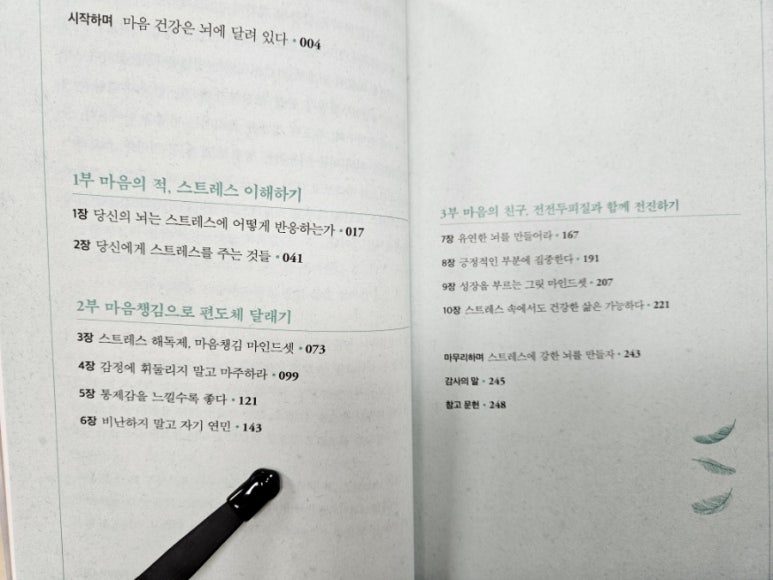 시작하며 마음 건강은 뇌에 달려 있다 • 004
1부 마음의 적, 스트레스 이해하기
1장 당신의 뇌는 스트레스에 어떻게 반응하는가 • 017
2장 당신에게 스트레스를 주는 것들 • 041
2부 마음챙김으로 편도체 달래기
3장 스트레스 해독제, 마음챙김 마인드셋 • 073
4장 감정에 휘둘리지 말고 마주하라 • 099
5장 통제감을 느낄수록 좋다 • 121
6장 비난하지 말고 자기 연민 • 143
3부 마음의 친구, 전전두피질과 함께 전진하기
7장 유연한 뇌를 만들어라 • 167
8장 긍정적인 부분에 집중한다 • 191
9장 성장을 부르는 그릿 마인드셋 • 207
10장 스트레스 속에서도 건강한 삶은 가능하다 • 221
마무리하며 스트레스에 강한 뇌를 만들자 • 243
감사의 말 • 245
참고 문헌 • 248